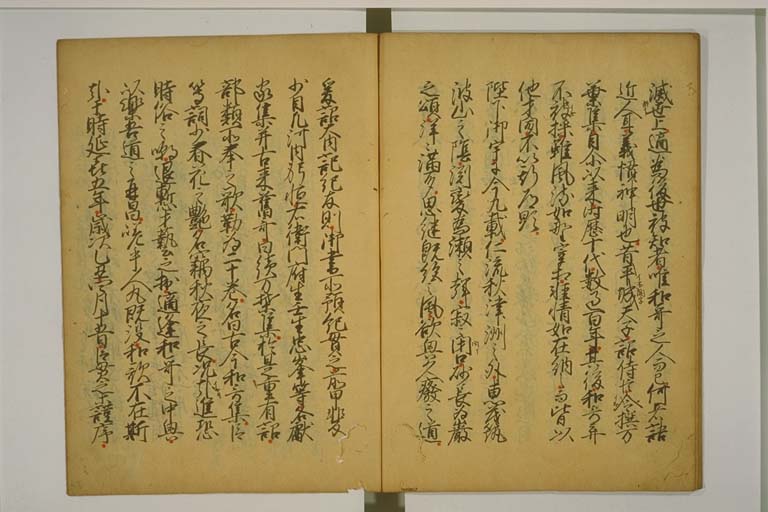 滅世上適為後世被知者唯和哥之人而已何者語
近人耳義慣神明也昔平城天子詔侍臣令撰万
葉集自尓以来時歴十代数過百年其後和哥弃
不被採雖風流如野宰相軽情如在納言而皆以
他才聞不以斯道顕
陛下御宇于今九載仁流秋津洲之外恵茂筑
波山之陰渕変為瀬之聲寂々閉口砂長為巌
之頌洋々満耳思継既絶之風欲興久廃之道
爰詔大内記紀友則御書所預紀貫之前甲斐
少目凡河内躬恒右衛門府生壬生忠峯等各獻
家集并古来舊哥曰續万葉集於是重有詔
部類所奉之歌勒為二十巻名曰古今和哥集臣
等詞少春花之艶名竊秋夜之長况哉進恐
時俗之嘲退慙才藝之拙適逢和哥之中興
以樂吾道之再昌嗟乎人丸既没和歌不在斯
哉于時延喜五年歳次乙丑四月十五日臣貫之等謹序